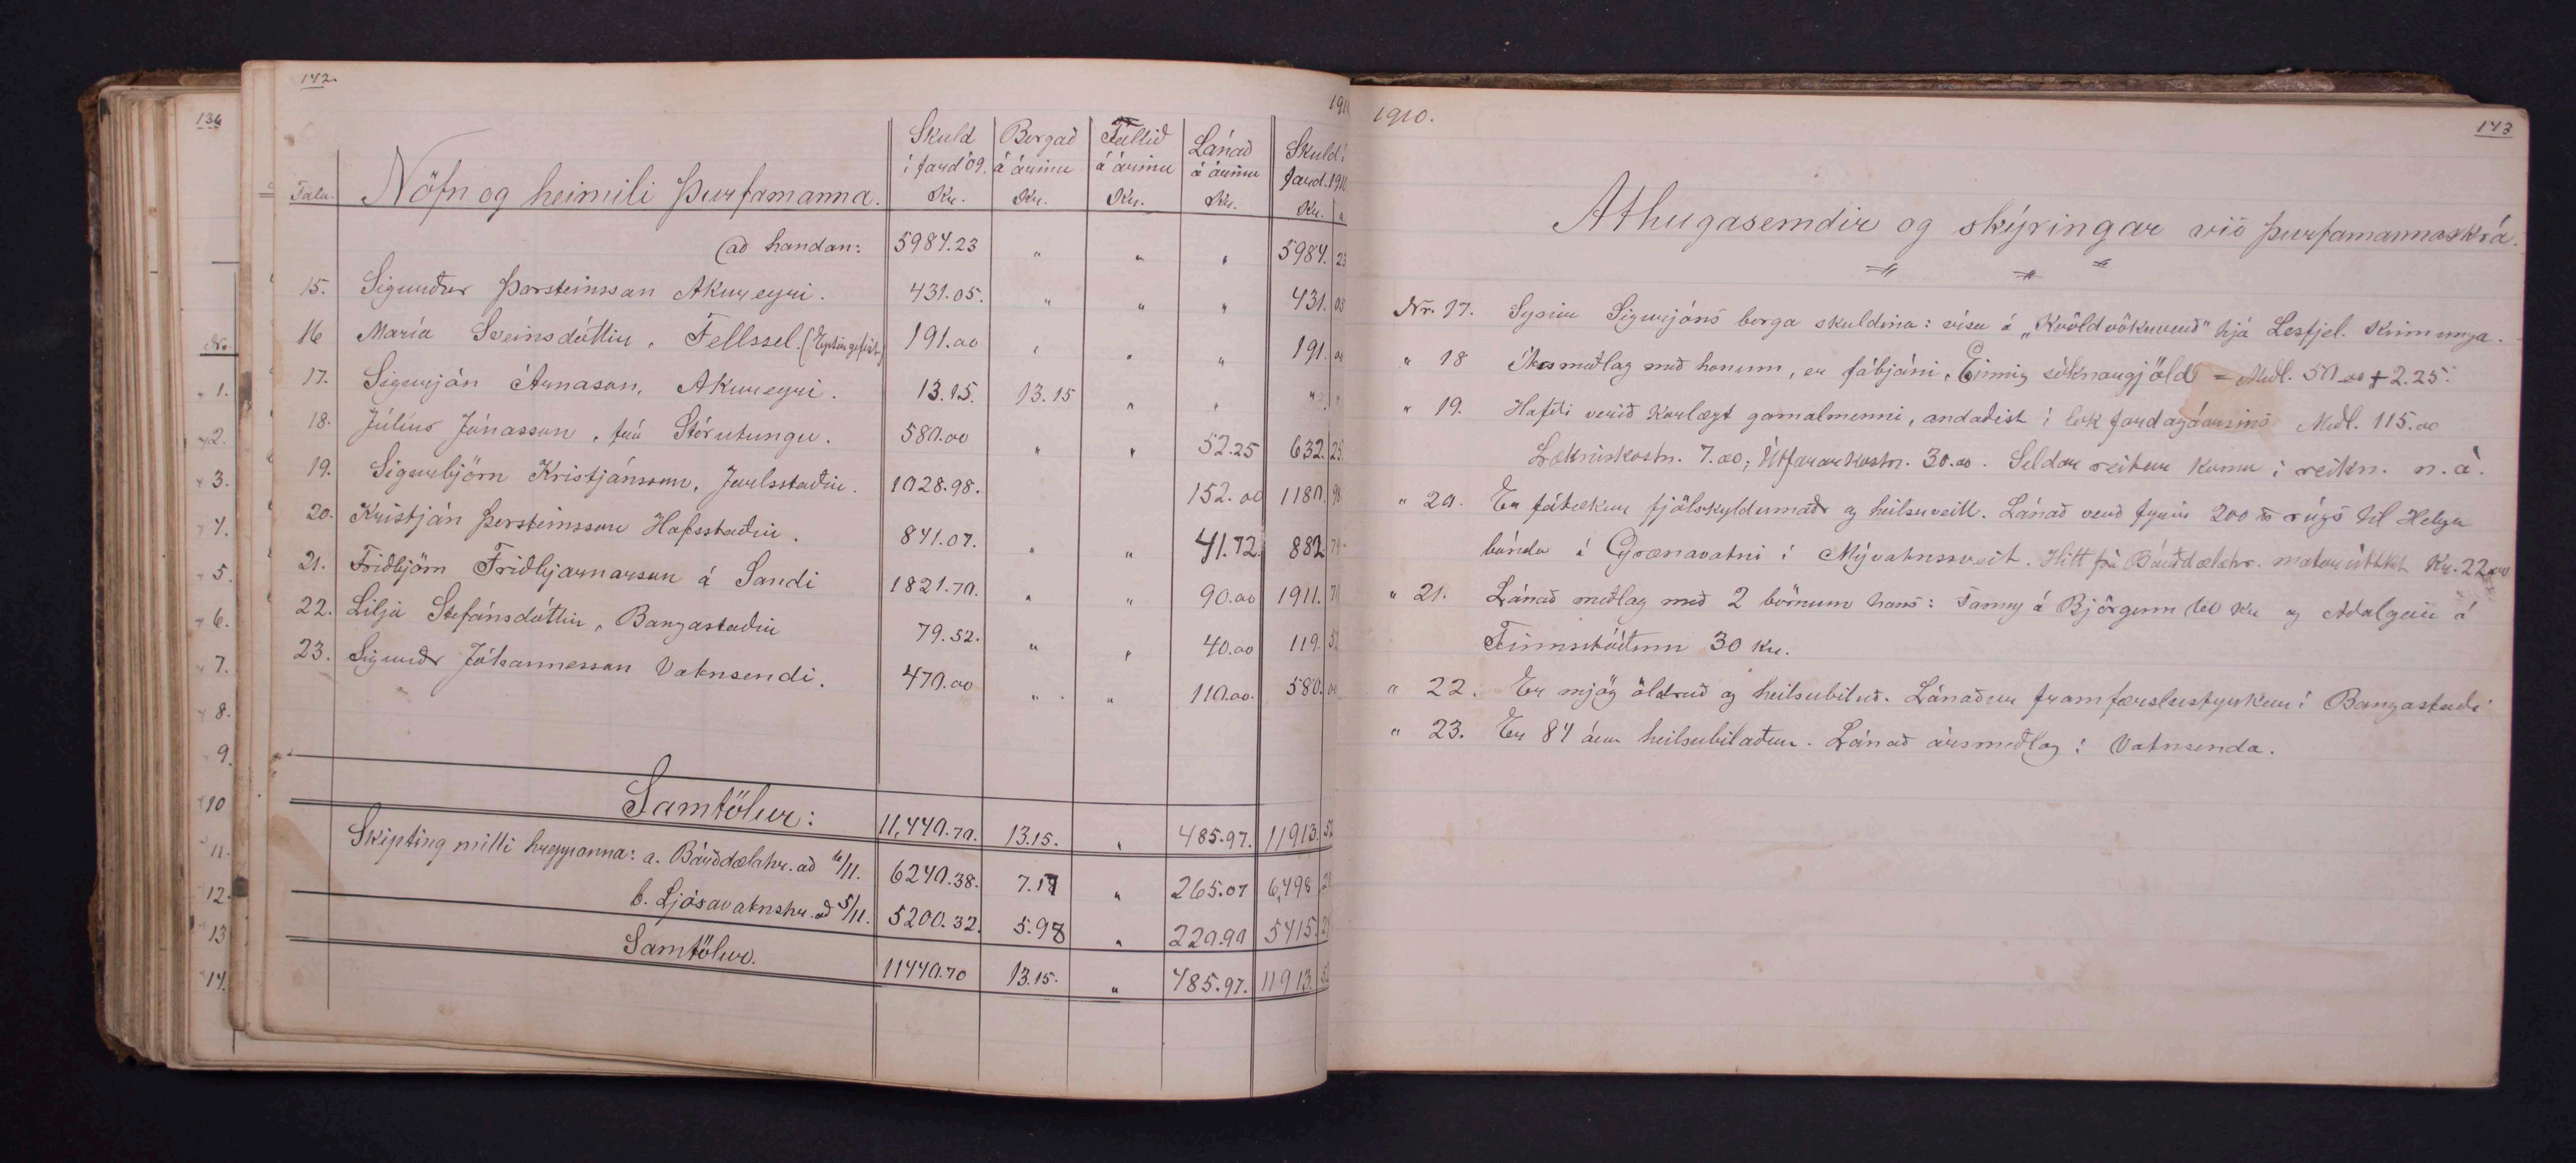 142.
1910
Talu. Nöfn og heimili þurfamanna. Skuld í fard '09. Kr. Borgað á árinu Kr. Fallið á árinu Kr. Lánað á árinu Kr. Skuld í fard. 1910 Kr. a
að handan: 5984.23 " " " 5984. 23
15. Sigurður Þorsteinsson Akureyri. 431.05. " " " 431. 05
16 María Sveinsdóttir, Fellssel. (Eptirgefið) 191.00 " " " 191. 00
17. Sigurjón Árnason, Akureyri. 13.15. 13.15 " " " "
18. Júlíus Jónasson, frá Stórutungu. 580.00 " " 52.25 632. 25.
19. Sigurbjörn Kristjánsson, Jarlsstaðir. 1028.98. 152.00 1180. 98
20. Kristján Þorsteinsson Hafsstaðir. 841.07. " " 41.72 882 79
21. Friðbjörn Friðbjarnarson á Sandi 1821.70. " " 90.00 1911. 70
22. Lilja Stefánsdóttir, Bangastaðir 79.52. " " 40.00 119. 52
23. Sigurðr Jóhannesson Vatnsendi. 470.00 " " 110.00. 580. 00
Samtölur: 11,440.70. 13.15. " 485.97. 11913. 52
Skipting milli hreppanna: a. Bárðdælahr. að 6/11. 6240.38. 7.17 " 265.07 6,498 28
b. Ljósavatnshr. að 5/11. 5200.32. 5.98 " 220.90 5415. 24
Samtölur. 11440.70 13.15. " 485.97. 11913. 52
136
Nr.
" 1.
" 2.
" 3.
" 4.
" 5.
" 6.
" 7.
" 8.
" 9.
" 10
" 11.
" 12.
" 13
" 14.
1910.
143
Athugasemdir og skýringar við þurfamannaskrá.
Nr. 17. Synir Sigurjóns borga skuldina: vísa á „Kvöldvökuverð" hjá Lestfjel.
" 18 Ársmeðlag með honum, er fábjáni. Einnig sóknargjöld = Meðl. 50.00 + 2.25.
" 19. Hafði verið karlægt gamalmenni, andaðist í lok fardagaársins Meðl. 115.00
Lækniskostn. 7.00; Útfararkostn. 30.00. Seldar reitur koma í reikn. n. á.
" 20. Er fátækur fjölskyldumaðr og heilsuveill. Lánað verð fyrir 200 ℔ rúgs til Helga
bónda á Grænavatni í Mývatnssveit. Hitt frá Bárðdælahr. matarúttekt Kr. 22.00
" 21. Lánað meðlag með 2 börnum hans: Fanny á Björgum 60 Kr og Aðalgeir á
Finnsstöðum 30 Kr.
" 22. Er mjög öldruð og heilsubiluð. Lánaður framfærslustyrkur í Bangastaði
" 23. Er 84 ára heilsubilaður. Lánað ársmeðlag í Vatnsenda.